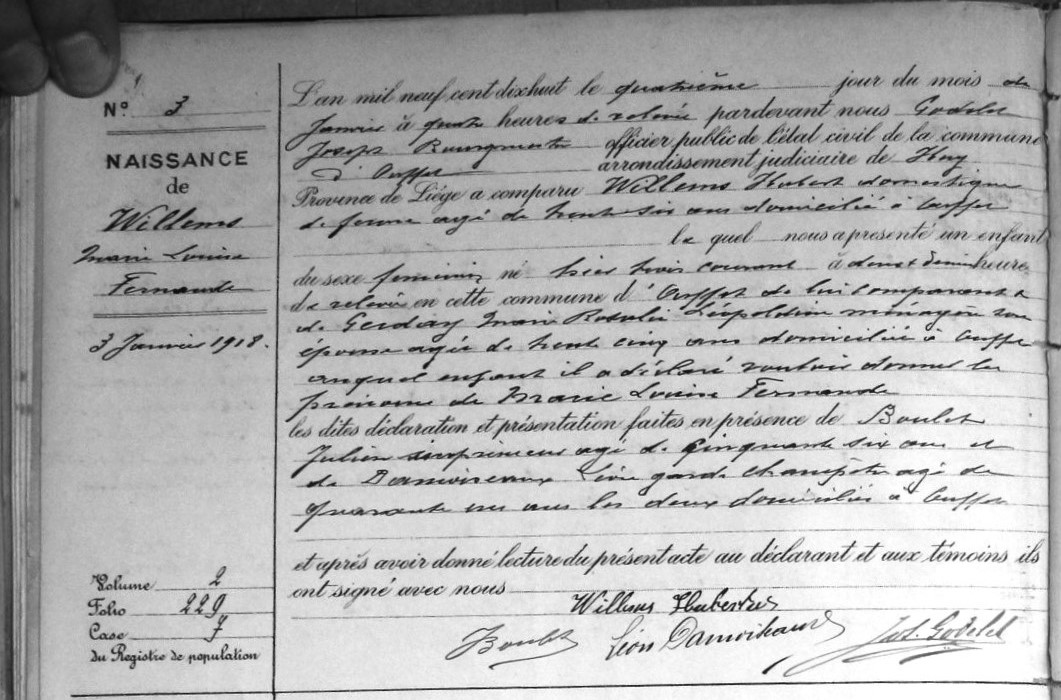 N° 3
NAISSANCE
de
Willems
Marie Louise
Fernande
3 Janvier 1918.
Volume 2
Folio 229
Case 7
du Registre de population
L'an mil neuf cent dixhuit le quatrième jour du mois de
Janvier à quatre heures de relevée pardevant nous Godelet
Joseph Bourgmestre officier public de l'état civil de la commune
d'Ouffet arrondissement judiciaire de Huy
Province de Liége a comparu Willems Hubert domestique
de ferme agé de trente six ans domicilié à Ouffet
le quel nous a présenté un enfant
du sexe feminin né hier trois courant à deux & demi heures
de relevée en cette commune d'Ouffet de lui comparant &
de Gerday Marie Rosalie Léopoldine ménagère son
épouse agée de trente cinq ans domiciliée à Ouffet
auquel enfant il a déclaré vouloir donner les
prénoms de Marie Louise Fernande
les dites déclaration et présentation faites en présence de Boulet
Julien agé de cinquante six ans et
de Damoiseaux Léon garde champêtre agé de
quarante un ans les deux domiciliés à Ouffet
et après avoir donné lecture du présent acte au déclarant et aux témoins ils
ont signé avec nous
Willems Hubertus
Boulet Léon Damoiseaux Jos. Godelet